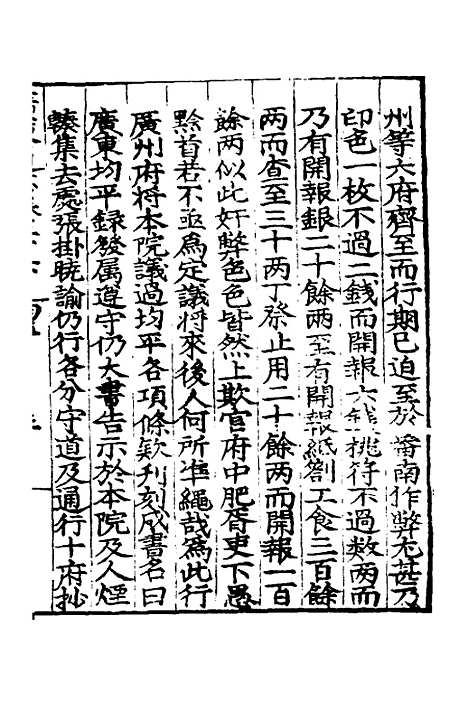 州等六府齊至而行期已迫至於番南作弊尤甚乃
印色一枚不過二錢而開報六錢桃符不過数两而
乃有開報銀二十餘两至有開報紙劄工食三百餘
两而查至三十两丁祭止用二十餘两而開報一百
餘两似此奸弊色色皆然上欺官府中肥胥吏下愚
黔首若不亟為定議将來後人何所準繩哉為此行
廣州府将本院議過均平各項條欵刋刻成書名曰
廣東均平録發属遵守仍大書告示於本院及人煙
輳集去處張掛曉諭仍行各分守道及通行十府抄